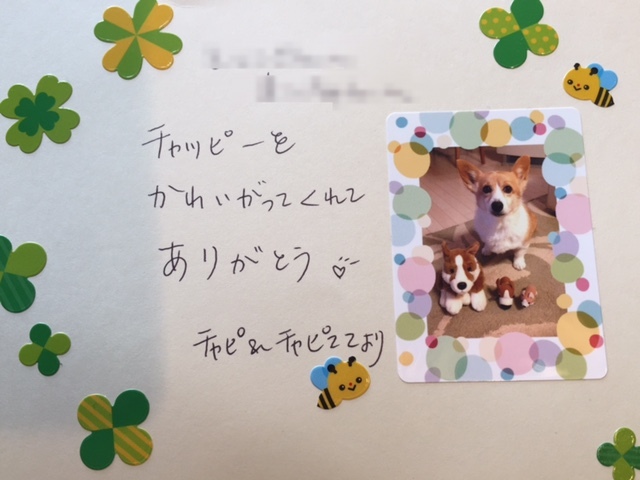 チャッピーを
かわいがってくれて
ありがとう
チャピ&チャピママより